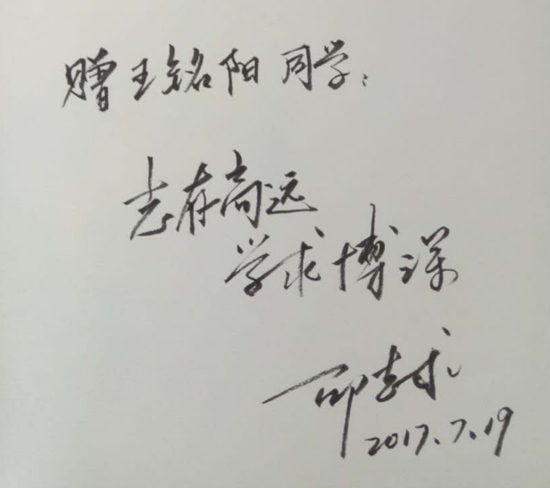 赠王铭阳同学：
志存高远
学求博深
2017.7.19